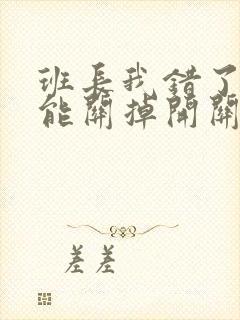 班長我錯了
能關掉開關
差差